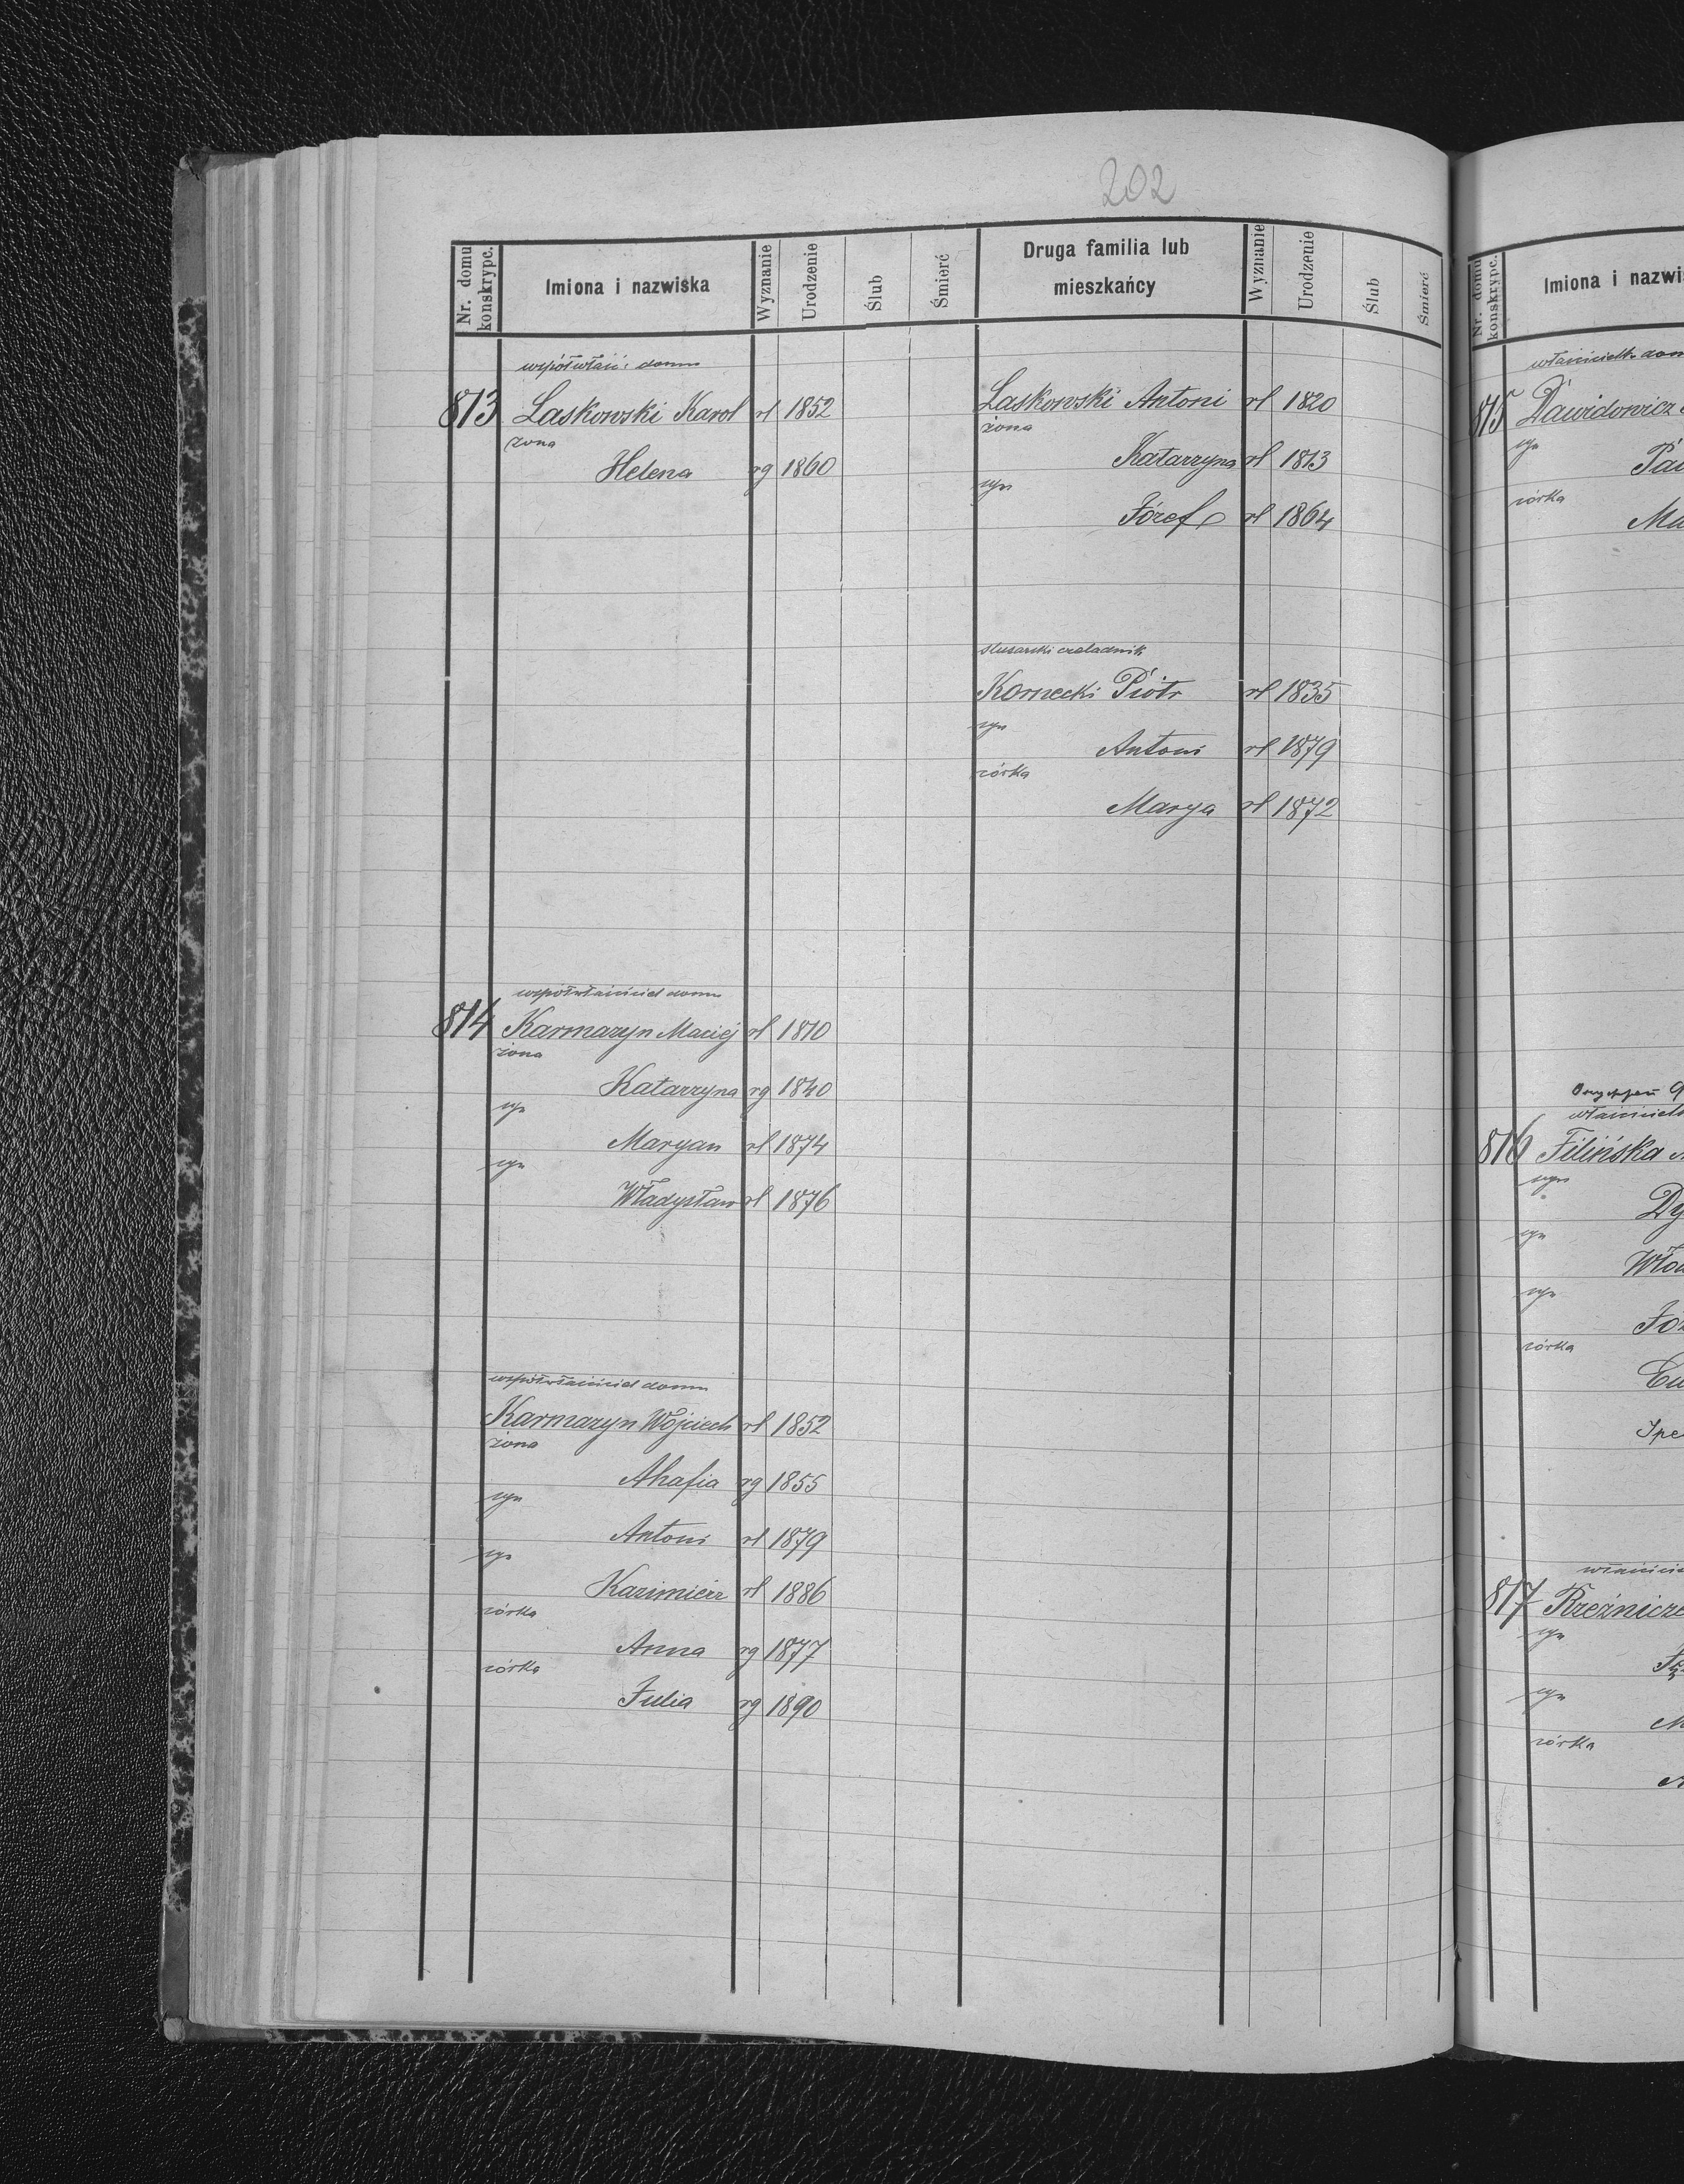 202
Nr. domu konskrypc.
Imiona i nazwiska
Wyznanie
Urodzenie
Ślub
Śmierć
Druga familia lub mieszkańcy
Wyznanie
Urodzenie
Ślub
Śmierć
współwłaść: domu
813 Laskowski Karol rł 1852
żona
Helena rg 1860
Laskowski Antoni rł 1820
żona
Katarzyna rł 1813
syn
Józef rł 1864
ślusarski czeladnik
Kornecki Piotr rł 1835
syn
Antoni rł 1879
córka
Marya rł 1872
współwłaściciel domu
814 Karmazyn Maciej rł 1810
żona
Katarzyna rg 1840
syn
Maryan rł 1874
syn
Władysław rł 1876
współwłaściciel domu
Karmazyn Wojciech rł 1852
żona
Ahafia rg 1855
syn
Antoni rł 1879
syn
Kazimierz rł 1886
córka
Anna rg 1877
córka
Julia rg 1890
Nr. domu konskrypc.
Imiona i nazwi
właściciel dom
815 Dawidowicz
syn
Pa
córka
Ma
właściciel
816 Filińska
syn
Dy
syn
Wło
syn
Józ
córka
Eu
właścicie
817 Rzeźnicz
syn
syn
M
córka